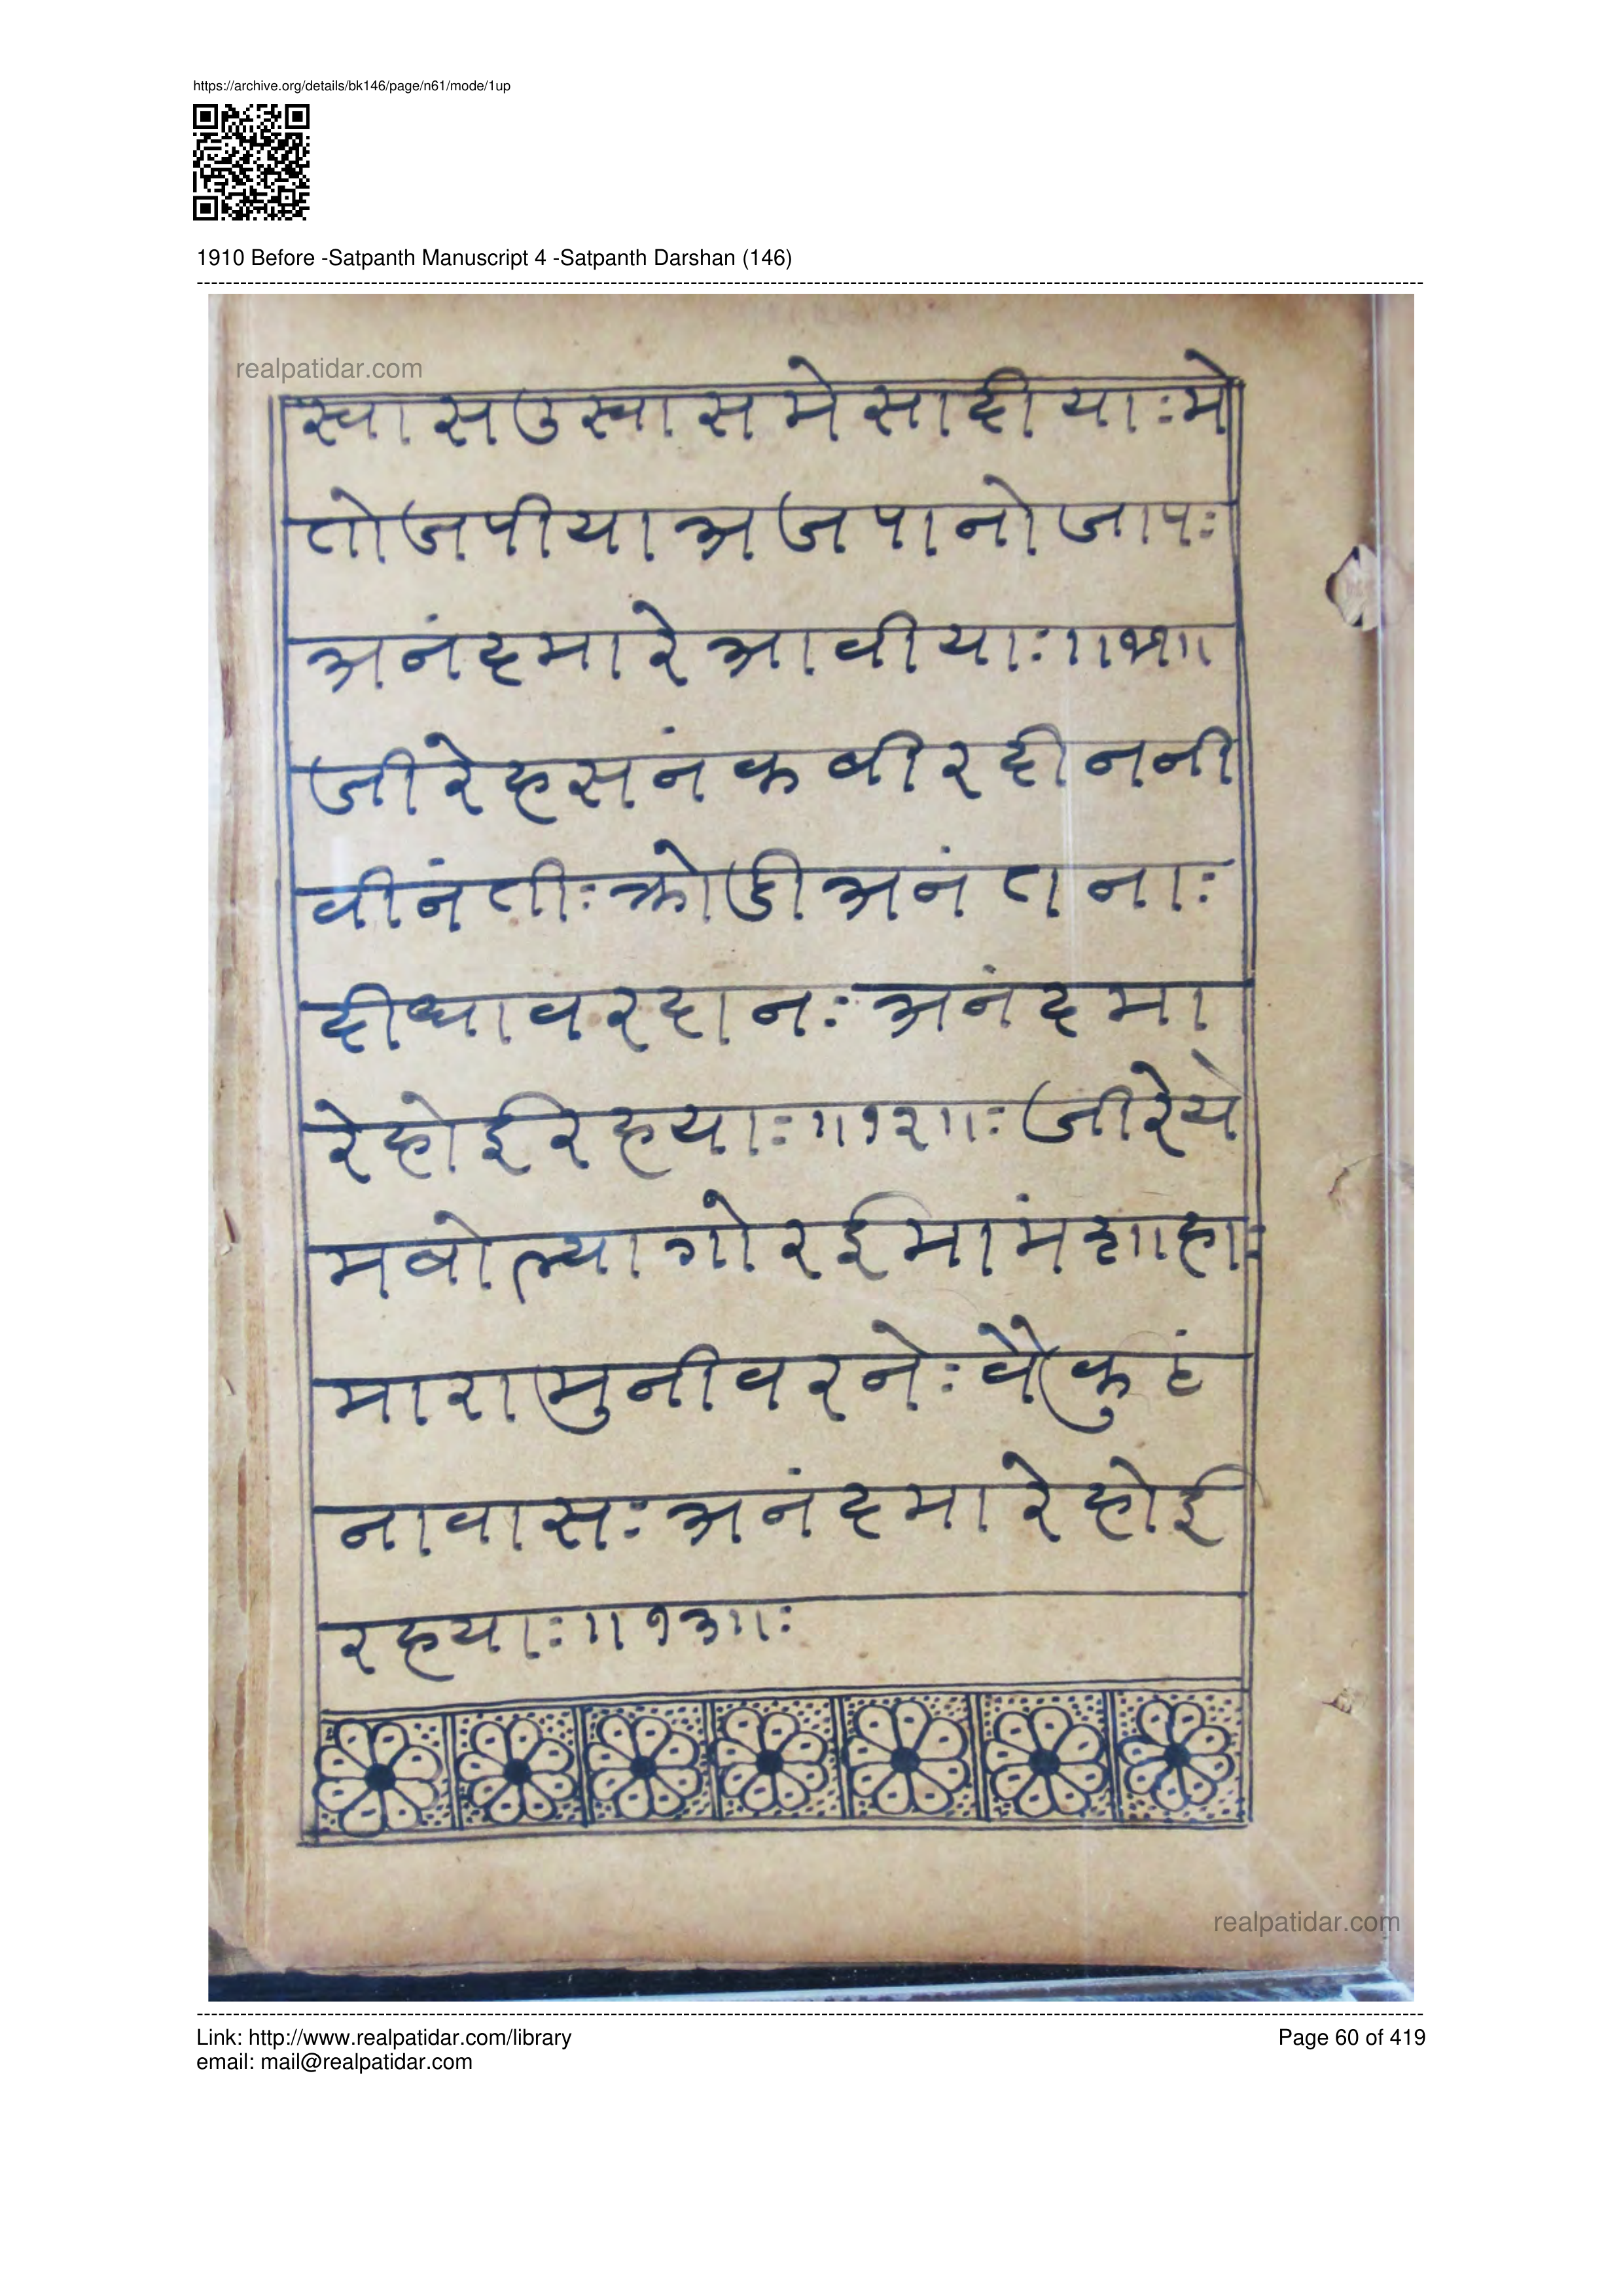 https://archive.org/details/bk146/page/n61/mode/1up
1910 Before -Satpanth Manuscript 4 -Satpanth Darshan (146)
realpatidar.com
स्वासउस्वासमेसादीयाःमे
तोजपीयाअजपानोजापः
अनंदमारेआवीयाः॥११॥
जीरेहसनंकबीरदीननी
वीनंतीःक्रोडीअनंतनाः
दीधावरदानःअनंदमा
रेहोईरहयाः॥१२॥ःजीरेये
मबोल्यागोरईमांमंशाहाः
मारामुनीवरनेःवैकुंठ
नावासःअनंदमारेहोई
रहयाः॥१३॥ः
realpatidar.com
Link: http://www.realpatidar.com/library
Page 60 of 419
email: mail@realpatidar.com